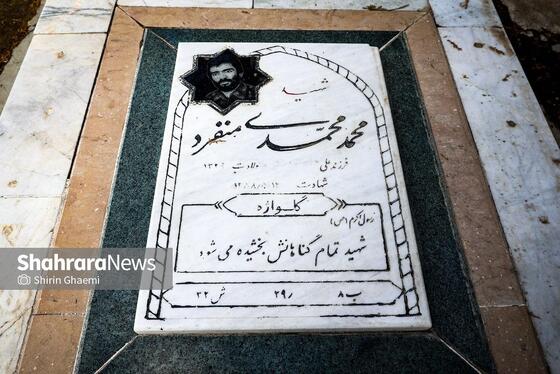 شهید
محمد محمدی منفرد
فرزند علی ولادت
شهادت
گلواژه
رسول اکرم (ص)
شهید تمام گناهانش بخشیده می شود
ب ۸ ر ۲۹ ش ۲۲
ShahraraNews
Shirin Ghaemi